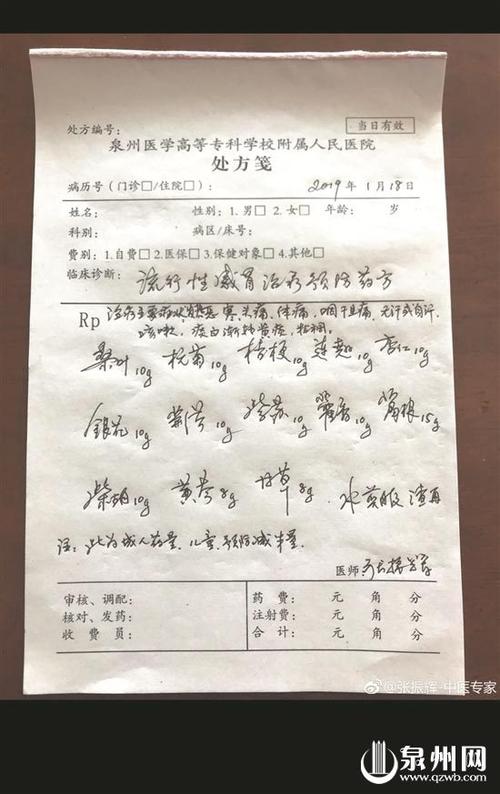 处方编号:
当日有效
泉州医学高等专科学校附属人民医院
处方笺
病历号(门诊□/住院□): 2019年1月18日
姓名: 性别:1.男□ 2.女□ 年龄: 岁
科别: 病区/床号:
费别:1.自费□ 2.医保□ 3.保健对象□ 4.其他□
临床诊断: 流行性感冒治疗预防药方
Rp 治疗主要症状发热恶寒,头痛,体痛,咽干且痛,无汗或自汗,
咳嗽,痰白渐转黄痰,
桑叶10g 杭菊10g 桔梗10g 连翘10g 杏仁10g
银花10g 荆芥10g 紫苏10g 藿香10g 葛根15g
柴胡10g 黄芩8g 甘草8g 水煎服 渣再
注:此为成人药量,儿童、预防减半量.
医师
审核、调配: 药费: 元 角 分
核对、发药: 注射费: 元 角 分
收费员: 合计: 元 角 分
@张振辉-中医专家
泉州网
www.qzwb.com